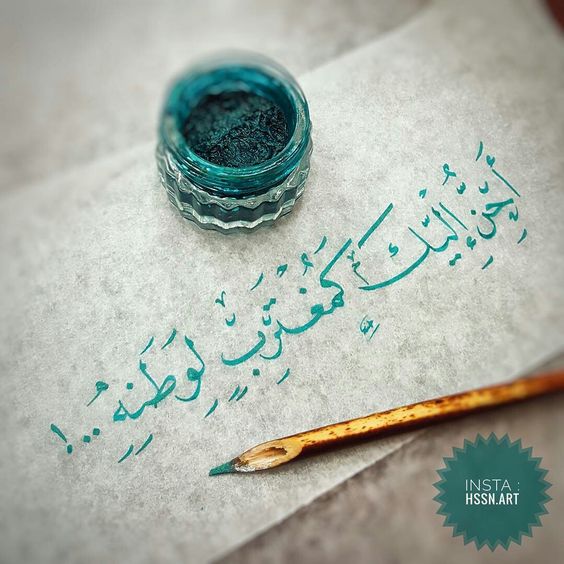 أَحِنُّ إِلَيْكَ كَمُغْتَرِبٍ لِوَطَنِهِ..!
INSTA :
HSSN.ART